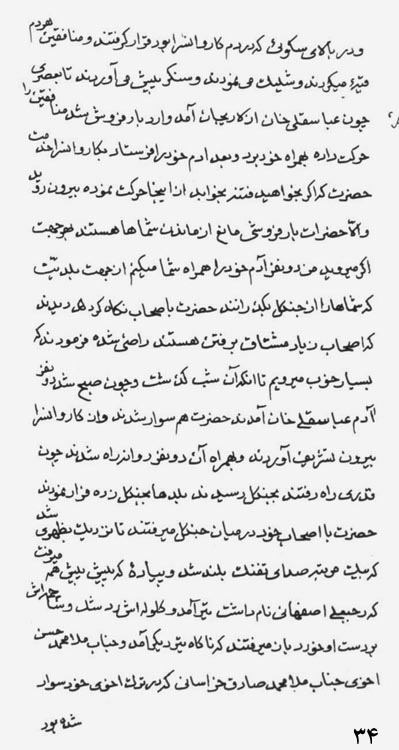 و در بالای سکوئی که در دم کاروانسرا بود قرار گرفتند و منافقین هر دم
فتنهٔ میکردند و شلیک می نمودند و سنکر پیش می آوردند تا بعصری
چون عباسقلی خان از کاریجان آمد وارد بارفروش شد منافقین را
حرکت داده بهمراه خود برد و بعد آدم خود را فرستاد بکاروانسرا خدمت
حضرت که اگر بخواهید فتنه بخوابد از اینجا حرکت نموده بیرون روید
والّا حضرات بارفروشی مانع از ماندن شماها هستند بهر جهت
اگر میروید من دو نفر آدم خود را همراه شما میکنم از جهت بلدیّت
که شماها را از جنکل بکذرانند حضرت باصحاب نکاه کردند دیدند
که اصحاب زیاد مشتاق برفتن هستند راضی شده فرمودند که
بسیار خوب میرویم تا آنکه آن شب کذشت و چون صبح شد دو نفر
آدم عباسقلی خان آمدند حضرت هم سوار شدند و از کاروانسرا
بیرون تشریف آوردند و بهمراه آن دو نفر روانه راه شدند چون
قدری راه رفتند بجنکل رسیدند بلدها بجنکل زده فرار نمودند
حضرت با اصحاب خود در میان جنکل میرفتند تا نزدیک بظهری شد
که یک مرتبه صدای تفنک بلند شد و پیادهٔ که پیش پیش هم میرفت
که رجبعلی اصفهانی نام داشت تیر آمد و کلوله اش رد شد و
بر دست او خورد باز میرفتند که ناکاه تیر دیکری آمد و جناب ملا محمد حسن
اخوی جناب ملا محمد صادق خراسانی که در ترک اخوی خود سوار
شده بود
۳۴